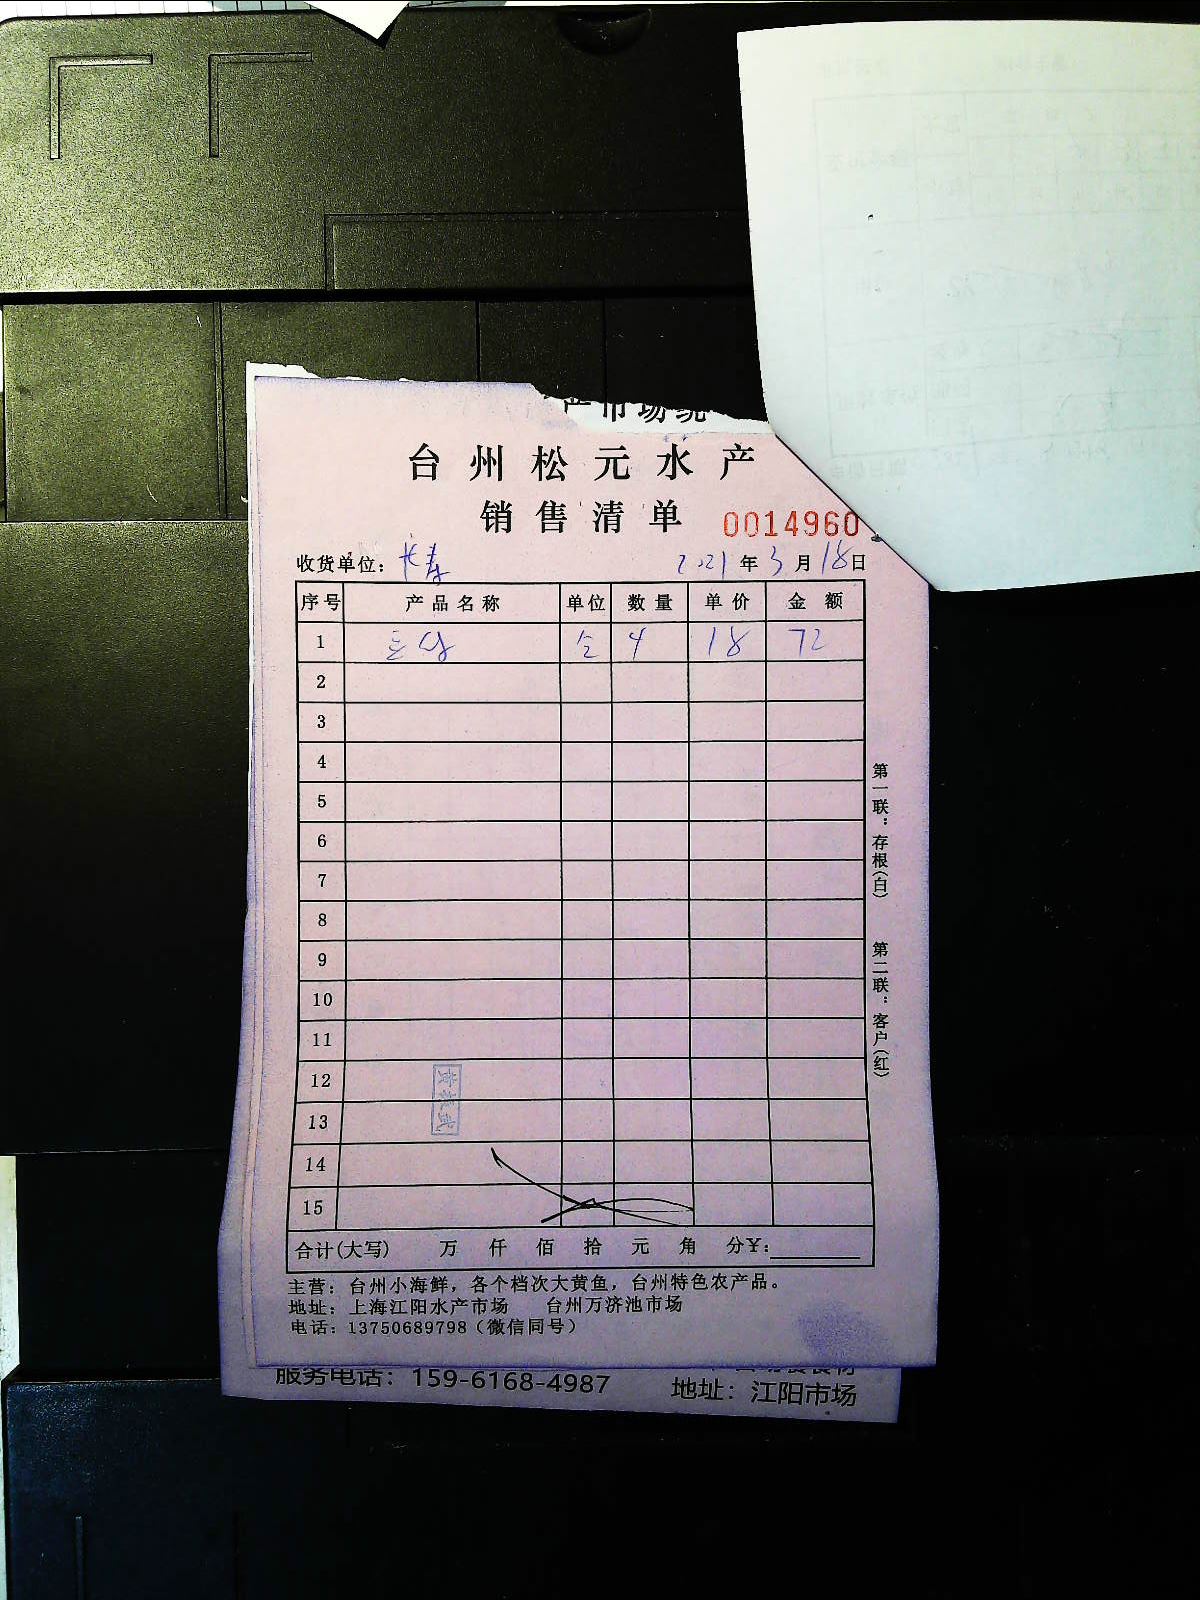 产市场统
台州松元水产
销售清单 0014960
收货单位：长寿 2021年3月18日
序号 产品名称 单位 数量 单价 金额
1 4 18 72
2
3
4
5
6
7
8
9
10
11
12
13
14
15
合计(大写) 万 仟 佰 拾 元 角 分¥：
主营：台州小海鲜，各个档次大黄鱼，台州特色农产品。
地址：上海江阳水产市场 台州万济池市场
电话：13750689798（微信同号）
第一联：存根(白) 第二联：客户(红)
服务电话：159-6168-4987 地址：江阳市场